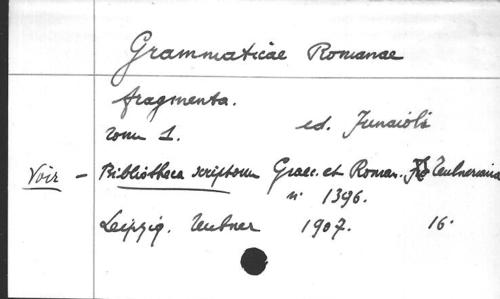 Grammaticae Romanae
fragmenta.
Tom 1. ed. Funaioli
Voir - Bibliotheca scriptorum Graec. et Roman. Teubneriana
n° 1396.
Leipzig. Teubner 1907. 16.